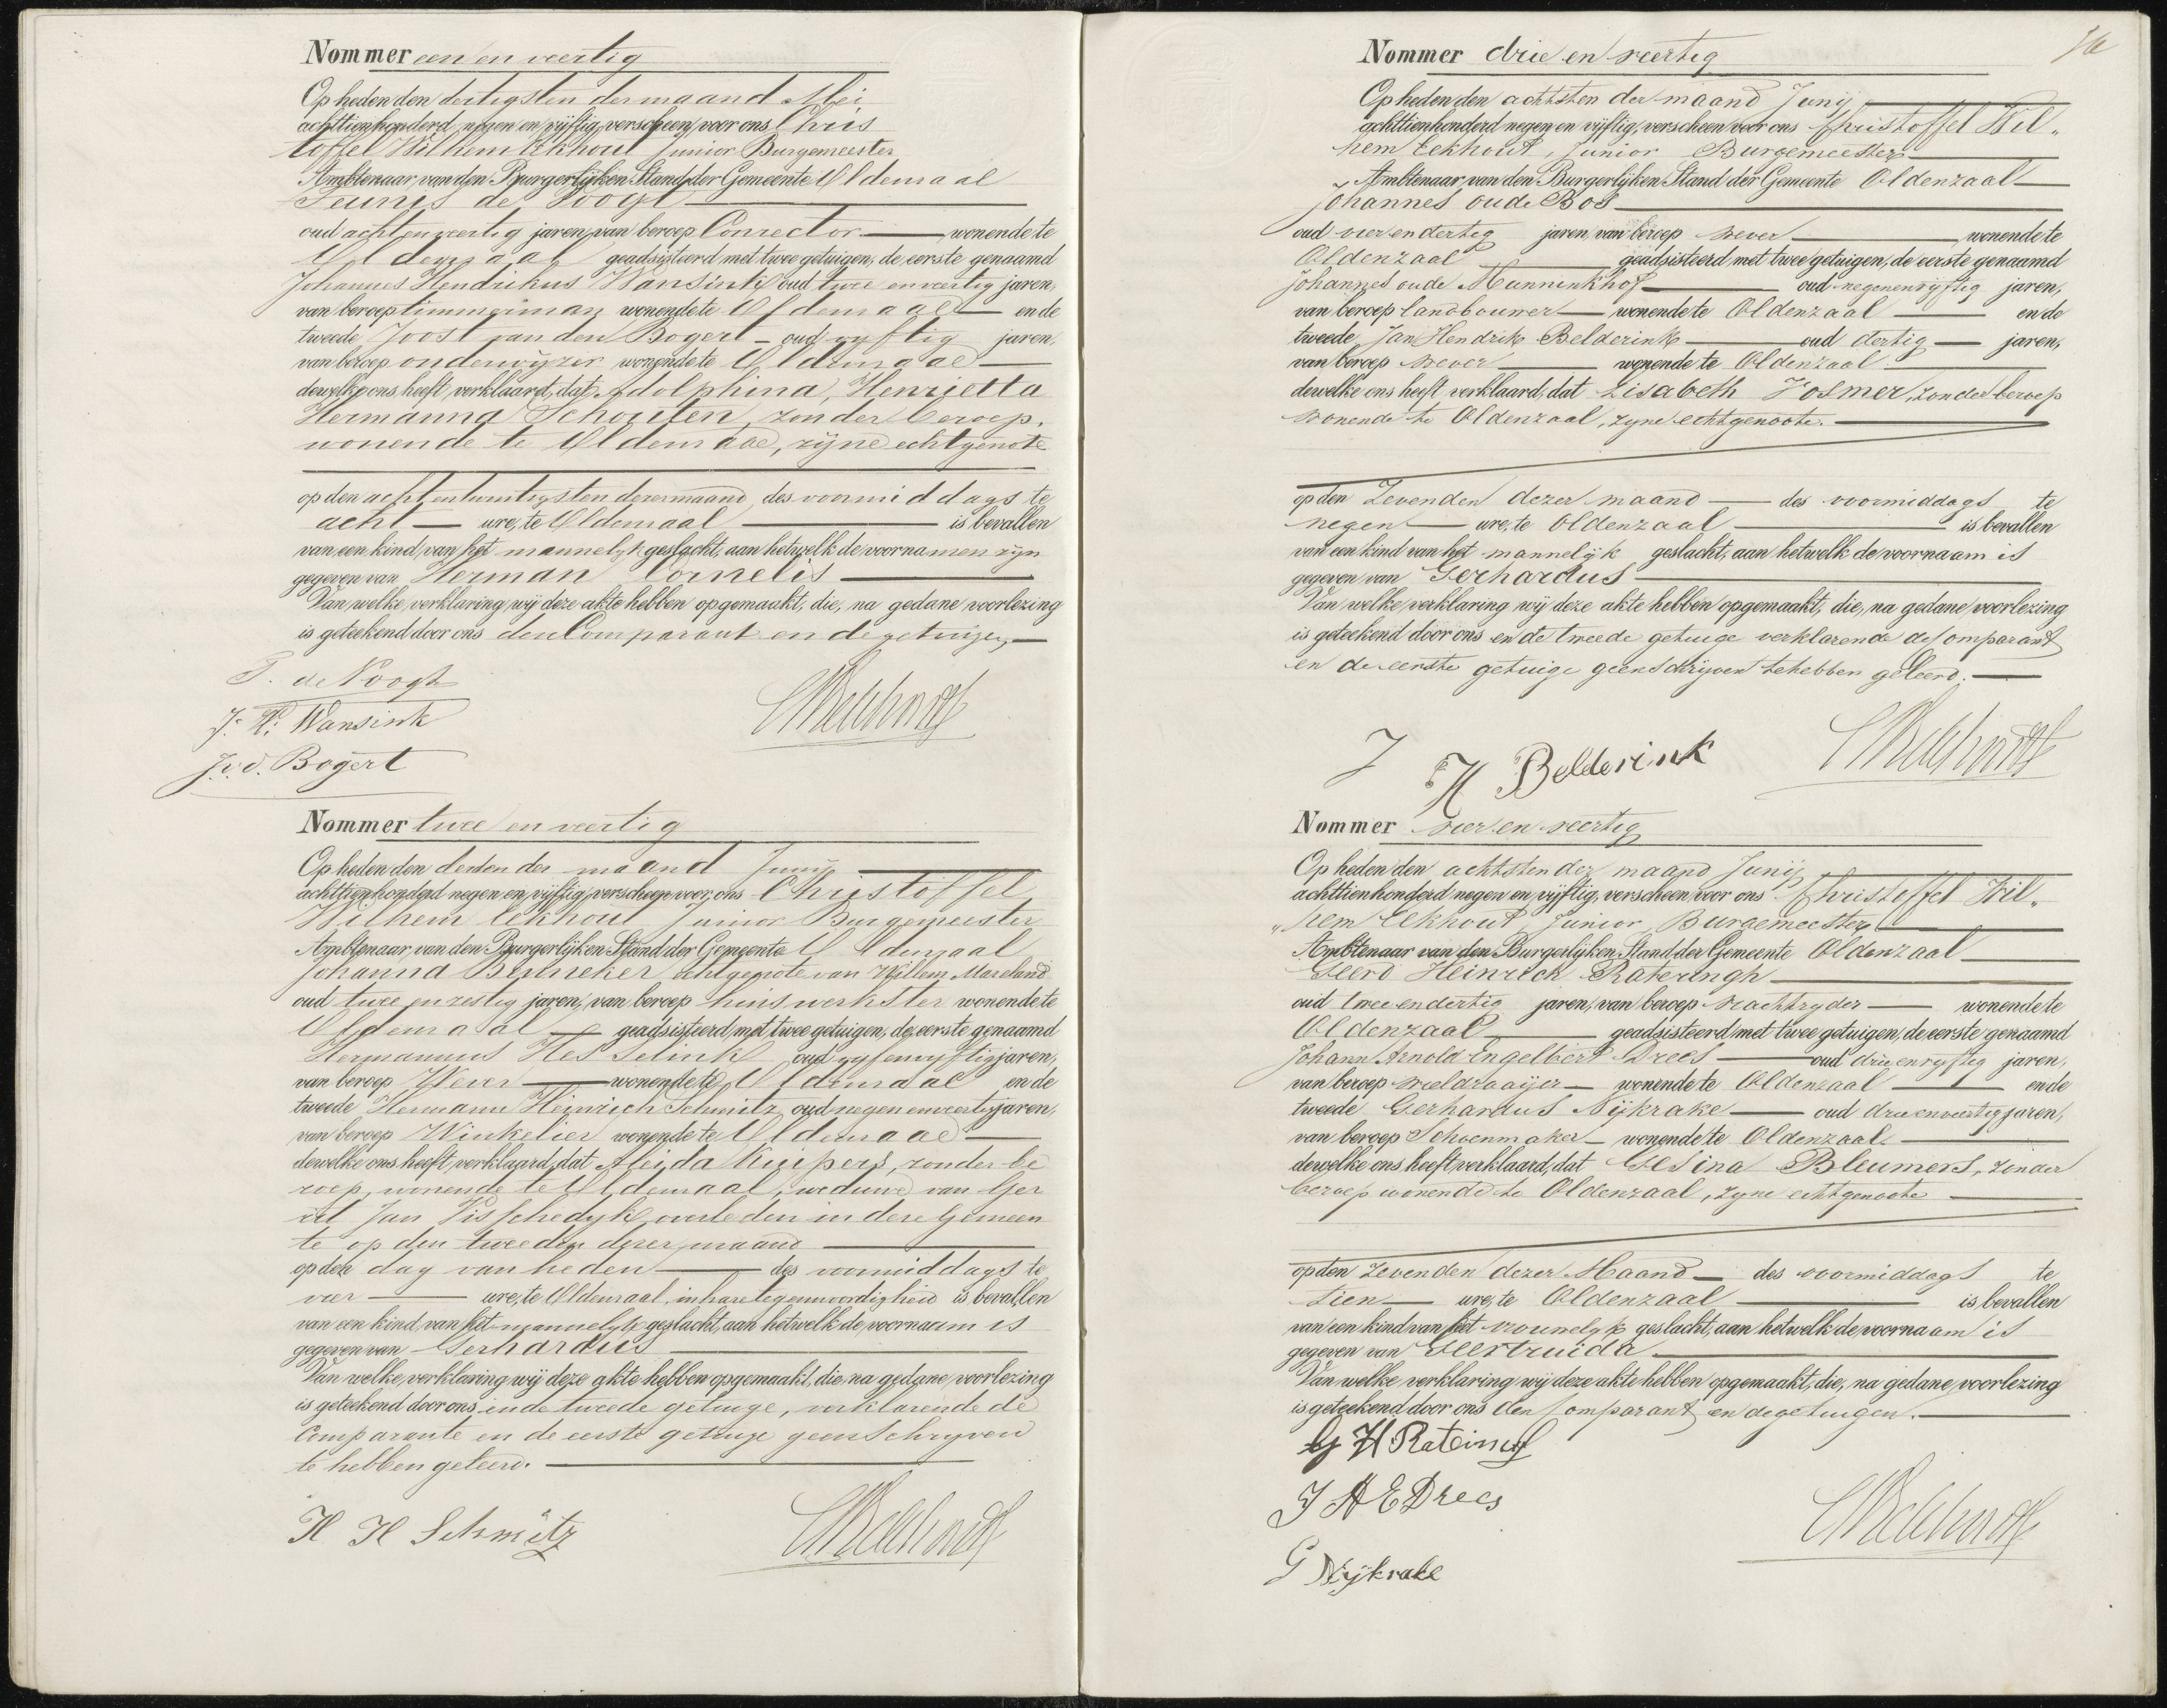 Nommer een en veertig
Op heden den dertigsten der maand Mei
achttienhonderd negen en vijftig, verscheen voor ons Chris
toffel Wilhem Eekhout Junior Burgemeester
Ambtenaar van den Burgerlijken Stand der Gemeente Oldenzaal
Teunis de Voogt
oud acht en veertig jaren, van beroep Conrector wonende te
Oldenzaal geadsisteerd met twee getuigen, de eerste genaamd
Johannes Hendrikus Wansink oud twee en veertig jaren,
van beroep timmerman wonende te Oldenzaal en de
tweede Joost van den Bogert oud vyftig jaren,
van beroep onderwijzer wonende te Oldenzaal
dewelke ons heeft verklaard, dat Adolphina, Henrietta
Hermanna Schouten, zonder beroep,
wonende te Oldenzaal, zijne echtgenote
op den acht en twintigsten dezer maand des voormiddags te
acht ure, te Oldenzaal is bevallen
van een kind van het mannelyk geslacht, aan hetwelk de voornamen zyn
gegeven van Herman Cornelis
Van welke verklaring wij deze akte hebben opgemaakt, die, na gedane voorlezing
is geteekend door ons den Comparant en de getuigen
T. de Voogt
J. H. Wansink
J. v. d. Bogert
CWEekhoutJr
Nommer twee en veertig
Op heden den derden der maand Junij
achttienhonderd negen en vijftig, verscheen voor ons Christoffel
Wilhem Eekhout Junior Burgemeester
Ambtenaar van den Burgerlijken Stand der Gemeente Oldenzaal
Johanna echtgenote van Willem
oud twee en zestig jaren, van beroep huiswerkster wonende te
Oldenzaal geadsisteerd met twee getuigen, de eerste genaamd
Hermannus Hes Selink oud vyf en vyftig jaren,
van beroep Wever wonende te Oldenzaal en de
tweede Hermann Heinrich Schmitz oud negen en veertig jaren,
van beroep Winkelier wonende te Oldenzaal
dewelke ons heeft verklaard, dat Aleida Kuipers, zonder be
roep, wonende te Oldenzaal, weduwe van Ger
rit Jan Visschedyk, overleden in deze Gemeen
te op den tweeden dezer maand
op den dag van heden des voormiddags te
vier ure, te Oldenzaal, in hare tegenwoordigheid is bevallen
van een kind van het mannelyk geslacht, aan hetwelk de voornaam is
gegeven van Gerhardus
Van welke verklaring wij deze akte hebben opgemaakt, die, na gedane voorlezing
is geteekend door ons en de tweede getuige, verklarende de
Comparante en de eerste getuige geen schryven
te hebben geleerd.
H H Schmitz
CWEekhoutJr
Nommer drie en veertig
Op heden den achtsten der maand Junij
achttienhonderd negen en vijftig, verscheen voor ons Christoffel Wil„
hem Eekhout, Junior Burgemeester
Ambtenaar van den Burgerlijken Stand der Gemeente Oldenzaal
Johannes oude Bos
oud vier en dertig jaren, van beroep wever wonende te
Oldenzaal geadsisteerd met twee getuigen, de eerste genaamd
Johannes oude Munninkhof oud negen en vyftig jaren,
van beroep landbouwer wonende te Oldenzaal en de
tweede Jan Hendrik Belderink oud dertig jaren,
van beroep wever wonende te Oldenzaal
dewelke ons heeft verklaard, dat Lisabeth Vosmer, zonder beroep
wonende te Oldenzaal, zyne echtgenoote.
op den Zevenden dezer maand des voormiddags te
negen ure, te Oldenzaal is bevallen
van een kind van het mannelijk geslacht, aan hetwelk de voornaam is
gegeven van Gerhardus
Van welke verklaring wij deze akte hebben opgemaakt, die, na gedane voorlezing
is geteekend door ons en de tweede getuige verklarende de Comparant
en de eerste getuige geen schryven te hebben geleerd.
J H Belderink
CWEekhoutJr
Nommer vier en veertig
Op heden den achtsten der maand Junij
achttienhonderd negen en vijftig, verscheen voor ons Christoffel Wil„
„hem Eekhout Junior, Burgemeester
Ambtenaar van den Burgerlijken Stand der Gemeente Oldenzaal
Geerd Heinrich Rateringh
oud twee en dertig jaren, van beroep vrachtryder wonende te
Oldenzaal geadsisteerd met twee getuigen, de eerste genaamd
Johann Arnold Engelbert Drees oud drie en vyftig jaren,
van beroep wieldraaijer wonende te Oldenzaal en de
tweede Gerhardus Nijkrake oud drie en veertig jaren,
van beroep Schoenmaker wonende te Oldenzaal
dewelke ons heeft verklaard, dat Gesina Bleumers, zonder
beroep wonende te Oldenzaal, zyne echtgenoote
op den Zevenden dezer Maand des voormiddags te
tien ure, te Oldenzaal is bevallen
van een kind van het vrouwelyk geslacht, aan hetwelk de voornaam is
gegeven van Geertruida
Van welke verklaring wij deze akte hebben opgemaakt, die, na gedane voorlezing
is geteekend door ons den Comparant en de getuigen.
G H Ratering
J A E Drees
G Nijkrake
CWEekhoutJr